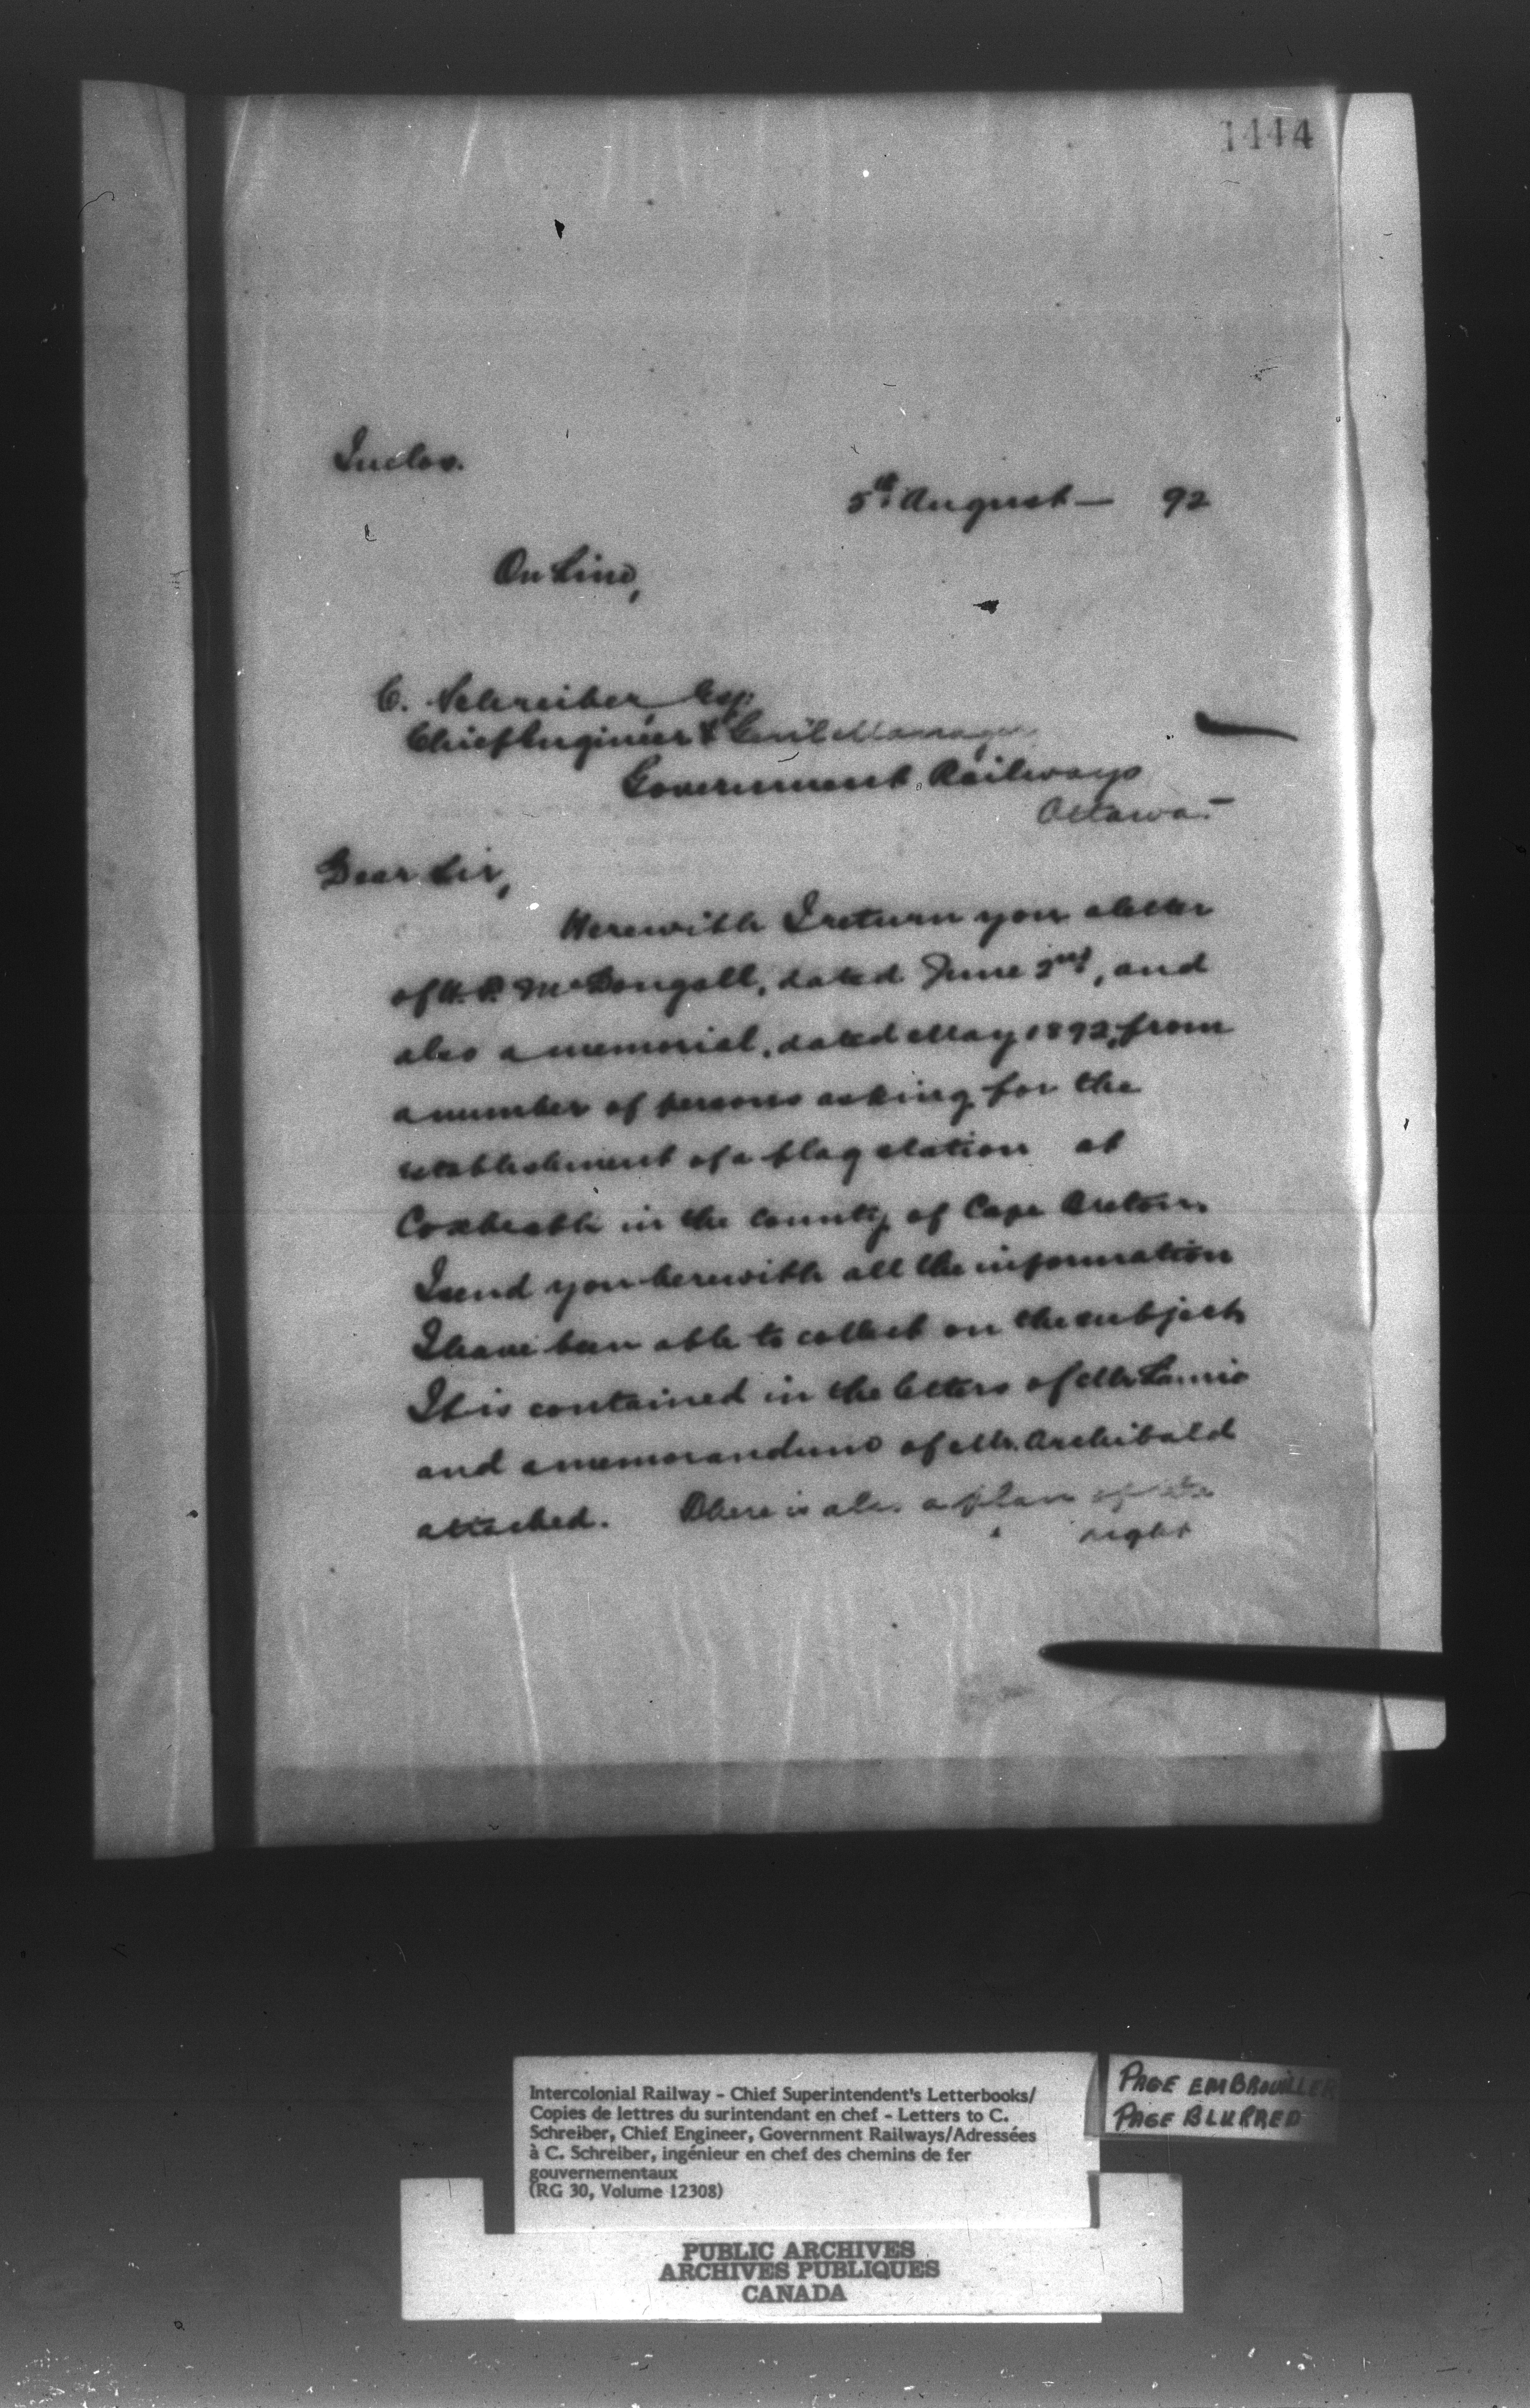 1444
Inclos.
5th August — 92
On Line,
C. Schreiber, Esq.
Chief Engineer & Gen'l Manager
Government Railways
Ottawa.—
Dear Sir,
Herewith I return you a letter
of H. F. McDougall, dated June 2nd, and
also a memorial, dated May 1892, from
a number of persons asking for the
establishment of a flag station at
Coxheath in the County of Cape Breton.
I send you herewith all the information
I have been able to collect on the subject
It is contained in the letters of Mr. Laurie
and a memorandum of Mr. Archibald
attached. There is also a plan of the
right
Intercolonial Railway - Chief Superintendent's Letterbooks/
Copies de lettres du surintendant en chef - Letters to C.
Schreiber, Chief Engineer, Government Railways/Adressées
à C. Schreiber, ingénieur en chef des chemins de fer
gouvernementaux
(RG 30, Volume 12308)
PAGE EMBROUILLER
PAGE BLURRED
PUBLIC ARCHIVES
ARCHIVES PUBLIQUES
CANADA